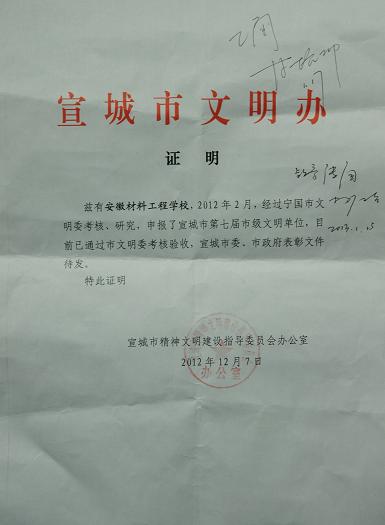 宣城市文明办
证 明
兹有安徽材料工程学校，2012年2月，经过宁国市文
明委考核、研究，申报了宣城市第七届市级文明单位，目
前已通过市文明委考核验收，宣城市委、市政府表彰文件
待发。
特此证明
2013.1.15
宣城市精神文明建设指导委员会办公室
2012年12月7日
办公室